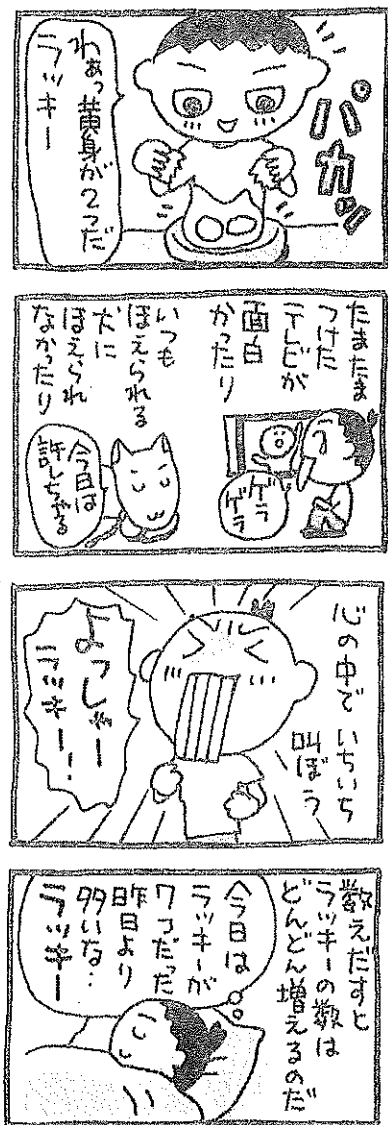 パカッ
わぁっ黄身が2つだ
ラッキー
たまたま
つけた
テレビが
面白
かったり
ゲラ
ゲラ
いつも
ほえられる
犬に
ほえられ
なかったり
今日は
許しちゃる
心の中でいちいち
叫ぼう
よっしゃー
ラッキー!
数えだすと
ラッキーの数は
どんどん増えるのだ
今日は
ラッキーが
7つだった
昨日より
多いな…
ラッキー